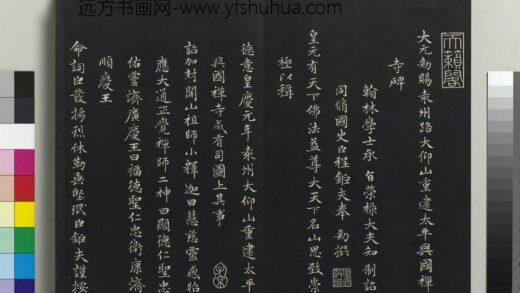 远方书画网-www.yfshuhua.com
天籟閣
大元勑賜袁州路大仰山重建太平興國禪
寺碑
翰林學士承旨榮禄大夫知制誥
同脩國史臣程鉅夫奉勑撰
皇元有天下佛法益尊大天下名山思致崇
極以稱
德意皇慶元年袁州大仰山重建太平
興國禪寺成有司圖上其事
詔加封開山祖師小釋迦曰慧慈靈感昭
應大通正覺禪師二神曰顯德仁聖忠
佑靈濟廣慶王曰福德聖仁忠衛康濟
順慶王
命詞臣發揚烈休勒垂堅珉臣鉅夫謹按